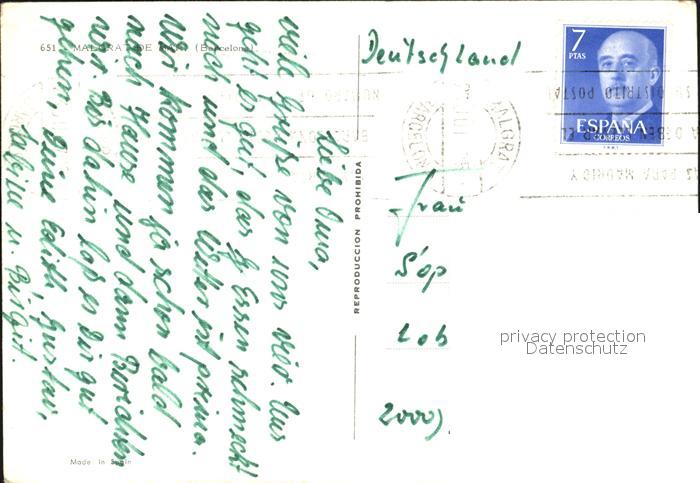 651 - MALGRAT DE MAR (Barcelona)
Liebe Oma,
viele Grüße von uns vier. Uns
geht es gut, das Essen schmeckt
auch und das Wetter ist prima.
Wir kommen ja schon bald
nach Hause und dann
wir. Bis dahin laß es Dir gut
gehen, Deine Edith, Gustav,
u Birgit.
Made in Spain
REPRODUCCION PROHIBIDA
Deutschland
Frau
2000
7
PTAS
ESPAÑA
CORREOS
MALGRAT
BARCELONA
DISTRITO POSTAL
PARA MADRID Y
privacy protection
Datenschutz